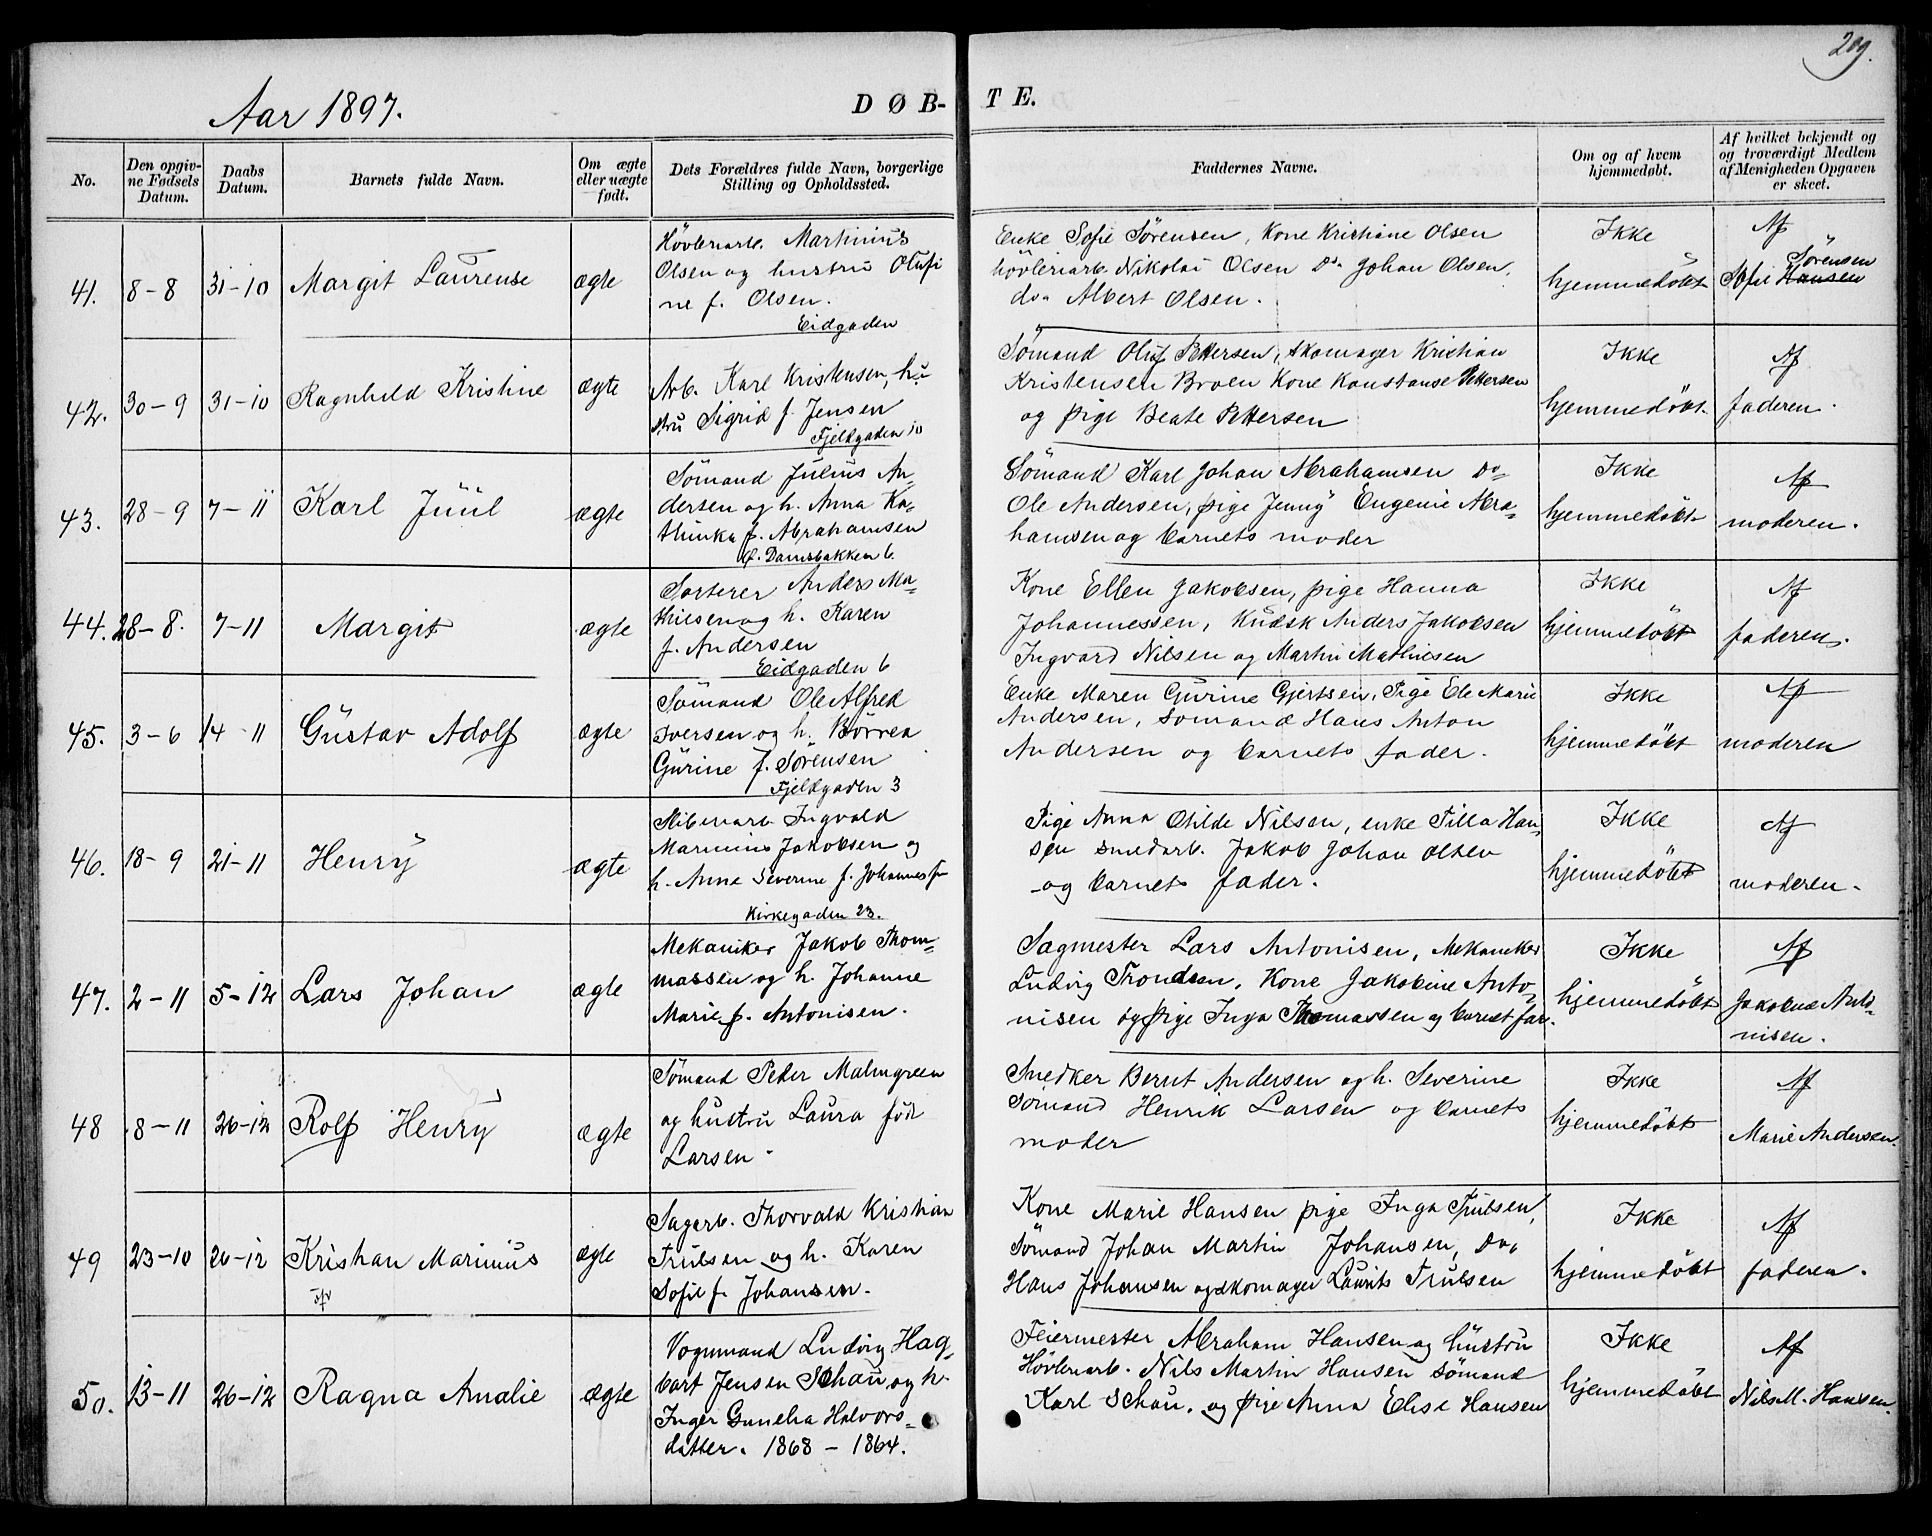 209.
Aar 1897.
DØB-
TE.
No.
Den opgiv-
ne Fødsels
Datum.
Daabs
Datum.
Barnets fulde Navn.
Om ægte
eller uægte
født.
Dets Forældres fulde Navn, borgerlige
Stilling og Opholdssted.
Faddernes Navne.
Om og af hvem
hjemmedøbt.
Af hvilket bekjendt og
og troværdigt Medlem
af Menigheden Opgaven
er skeet.
41. 8-8 31-10 Margit Laurense ægte
Høvleriarb. Martinius
Olsen og hustru Olufi
ne f. Olsen.
Eidgaden
Enke Sofie Sørensen, Kone Kristiane Olsen
høvleriarb. Nikolai Olsen Do. Johan Olsen,
do. Albert Olsen.
Ikke
hjemmedøbt
Af
Sørensen
Sofie Hansen
42. 30-9 31-10 Ragnhild Kristine ægte
Arb. Karl Kristensen, hu
stru Sigrid f. Jensen
Fjeldgaden 10
Sømand Oluf Pettersen, skomager Kristian
Kristensen Broen Kone Konstanse Pettersen
og pige Beate Pettersen
Ikke
hjemmedøbt.
Af
faderen.
43. 28-9 7-11 Karl Juul ægte
Sømand Julius An-
dersen og h. Anna Ka-
thinka f. Abrahamsen
Damsbakken 6.
Sømand Karl Johan Abrahamsen Do
Ole Andersen, pige Jenny Eugenie Abra-
hamsen og barnets moder
Ikke
hjemmedøbt
Af
moderen.
44. 28-8. 7-11 Margit ægte
Sorterer Anders Ma-
thiesen og h. Karen
f. Andersen
Eidgaden 6
Kone Ellen Jakobsen, pige Hanna
Johannessen, Kudsk Anders Jakobsen
Ingvard Nilsen og Martin Mathiesen
Ikke
hjemmedøbt
Af
faderen.
45. 3-6 14-11 Gustav Adolf ægte
Sømand Ole Alfred
Iversen og h. Børrea
Gurine f. Sørensen
Fjeldgaden 3
Enke Maren Gurine Gjertsen, Pige Ele Marie
Andersen, sømand Hans Anton
Andersen og barnets fader.
Ikke
hjemmedøbt
Af
moderen
46. 18-9 21-11 Henry ægte
Sliberiarb Ingvald
Marinius Jakobsen og
h. Anne Severine f. Johannessen
Kirkegaden 23.
Pige Anna Otilde Nilsen, enke Tilla Han-
sen smedarb. Jakob Johan Olsen
og barnets fader.
Ikke
hjemmedøbt
Af
moderen.
47. 2-11 5-12 Lars Johan ægte
Mekaniker Jakob Thom-
massen og h. Johanne
Marie f. Antonisen.
Sagmester Lars Antonisen, Mekaniker
Ludvig Trondsen, Kone Jakobine Anto-
nisen og Pige Inga Thomassen og barnet far.
Ikke
hjemmedøbt
Af
Jakobine Anto-
nisen.
48 8-11 26-12 Rolf Henry ægte
Sømand Peder Malmgreen
og hustru Laura født
Larsen.
Snedker Bernt Andersen og h. Severine
Sømand Henrik Larsen og barnets
moder
Ikke
hjemmedøbt
Af
Marie Andersen.
49 23-10 26-12 Kristian Marinius ægte
Sagarb. Thorvald Kristian
Trulsen og h. Karen
Sofie f. Johansen.
Kone Marie Hansen pige Inga Trulsen,
Sømand Johan Martin Johansen, Do,
Hans Johansen og skomager Laurits Trulsen
Ikke
hjemmedøbt
Af
faderen.
50. 13-11 26-12 Ragna Amalie ægte
Vognmand Ludvig Hag-
bart Jensen Schau og h.
Inger Gunelia Halvors-
datter. 1868 - 1864.
Feiermester Abraham Hansen og hustru
Høvleriarb. Nils Martin Hansen sømand
Karl Schau, og pige Anna Elise Hansen
Ikke
hjemmedøbt
Af
Nils M. Hansen.